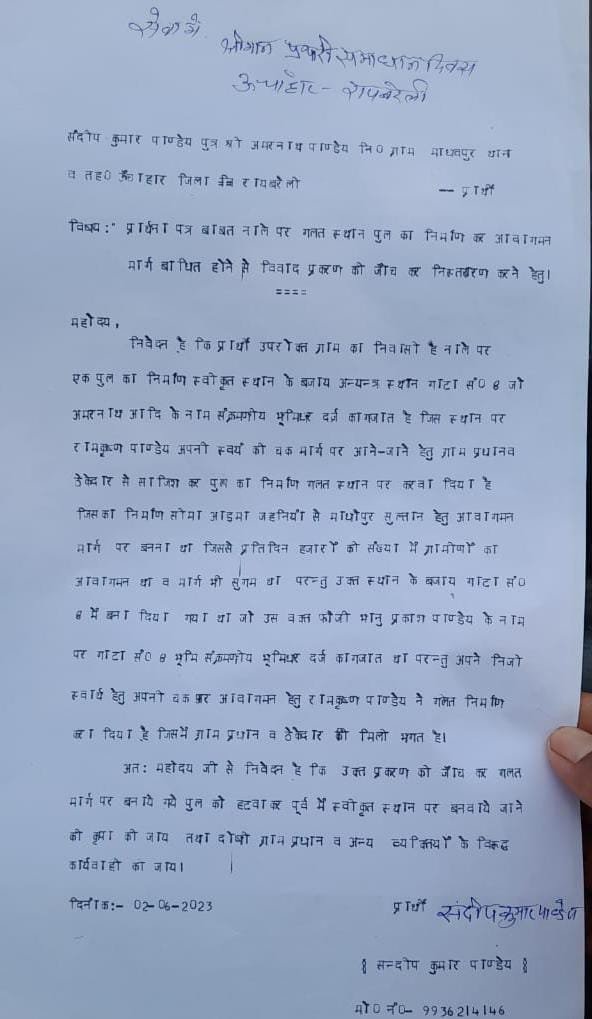 सेवा में,
श्रीमान प्रभारी समाधान दिवस
ऊंचाहार - रायबरेली
संदीप कुमार पाण्डेय पुत्र श्री अमरनाथ पाण्डेय नि0 ग्राम माधवपुर थाना
व तह0 ऊंचाहार जिला रायबरेली -- प्रार्थी
विषय:" प्रार्थना पत्र बाबत नाले पर गलत स्थान पुल का निर्माण कर आवागमन
मार्ग बाधित होने से विवाद प्रकरण की जाँच कर निस्तारण करने हेतु।
====
महोदय,
निवेदन है कि प्रार्थी उपरोक्त ग्राम का निवासी है नाले पर
एक पुल का निर्माण स्वीकृत स्थान के बजाय अन्यन्त्र स्थान गाटा सं0 8 जो
अमरनाथ आदि के नाम संक्रमणीय भूमिधर दर्ज कागजात है जिस स्थान पर
रामकृष्ण पाण्डेय अपनी स्वयं की चक मार्ग पर आने-जाने हेतु ग्राम प्रधान व
ठेकेदार से साजिश कर पुल का निर्माण गलत स्थान पर करवा दिया है
जिसका निर्माण सीमा जहनियाँ से माधोपुर सुल्तान हेतु आवागमन
मार्ग पर बनना था जिससे प्रतिदिन हजारों की संख्या में ग्रामीणों का
आवागमन था व मार्ग भी सुगम था परन्तु उक्त स्थान के बजाय गाटा सं0
8 में बना दिया गया था जो उस वक्त फौजी भानु प्रकाश पाण्डेय के नाम
पर गाटा सं0 8 भूमि संक्रमणीय भूमिधर दर्ज कागजात था परन्तु अपने निजी
स्वार्थ हेतु अपनी चक पर आवागमन हेतु रामकृष्ण पाण्डेय ने गलत निर्माण
करा दिया है जिसमें ग्राम प्रधान व ठेकेदार की मिली भगत है।
अत: महोदय जी से निवेदन है कि उक्त प्रकरण की जाँच कर गलत
मार्ग पर बनाये गये पुल को हटवाकर पूर्व में स्वीकृत स्थान पर बनवाये जाने
की कृपा की जाय तथा दोषी ग्राम प्रधान व अन्य व्यक्तियों के विरूद्ध
कार्यवाही का जाय।
दिनाँक:- 02-06-2023 प्रार्थी संदीप कुमार पाण्डेय
§ सन्दीप कुमार पाण्डेय §
मो0 नं0- 9936214146